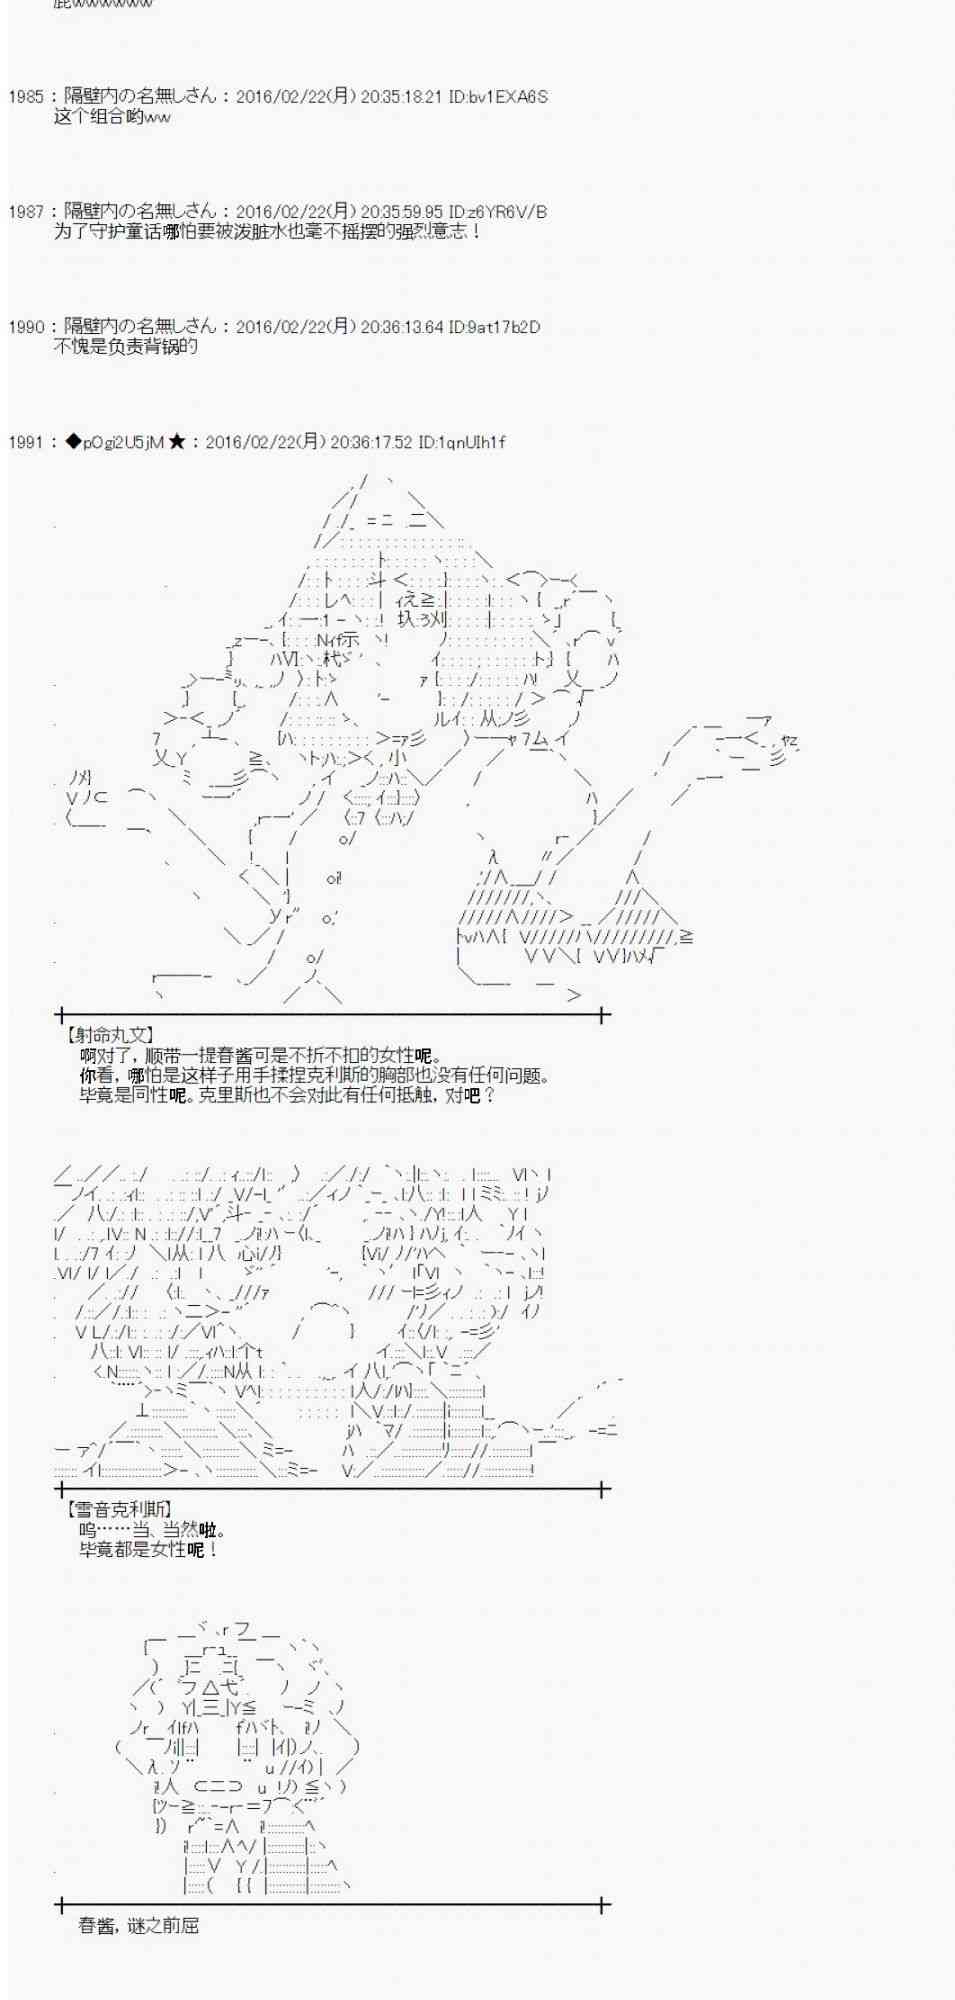 屁wwwwww
1985 : 隔壁内の名無しさん : 2016/02/22(月) 20:35:18.21 ID:bv1EXA6S
这个组合哟ww
1987 : 隔壁内の名無しさん : 2016/02/22(月) 20:35:59.95 ID:z6YR6V/B
为了守护童话哪怕要被泼脏水也毫不摇摆的强烈意志！
1990 : 隔壁内の名無しさん : 2016/02/22(月) 20:36:13.64 ID:9at17b2D
不愧是负责背锅的
1991 : ◆pOgi2U5jM ★ : 2016/02/22(月) 20:36:17.52 ID:1qnUIh1f
【射命丸文】
啊对了，顺带一提春酱可是不折不扣的女性呢。
你看，哪怕是这样子用手揉捏克利斯的胸部也没有任何问题。
毕竟是同性呢。克里斯也不会对此有任何抵触，对吧？
【雪音克利斯】
呜……当、当然啦。
毕竟都是女性呢！
春酱，谜之前屈